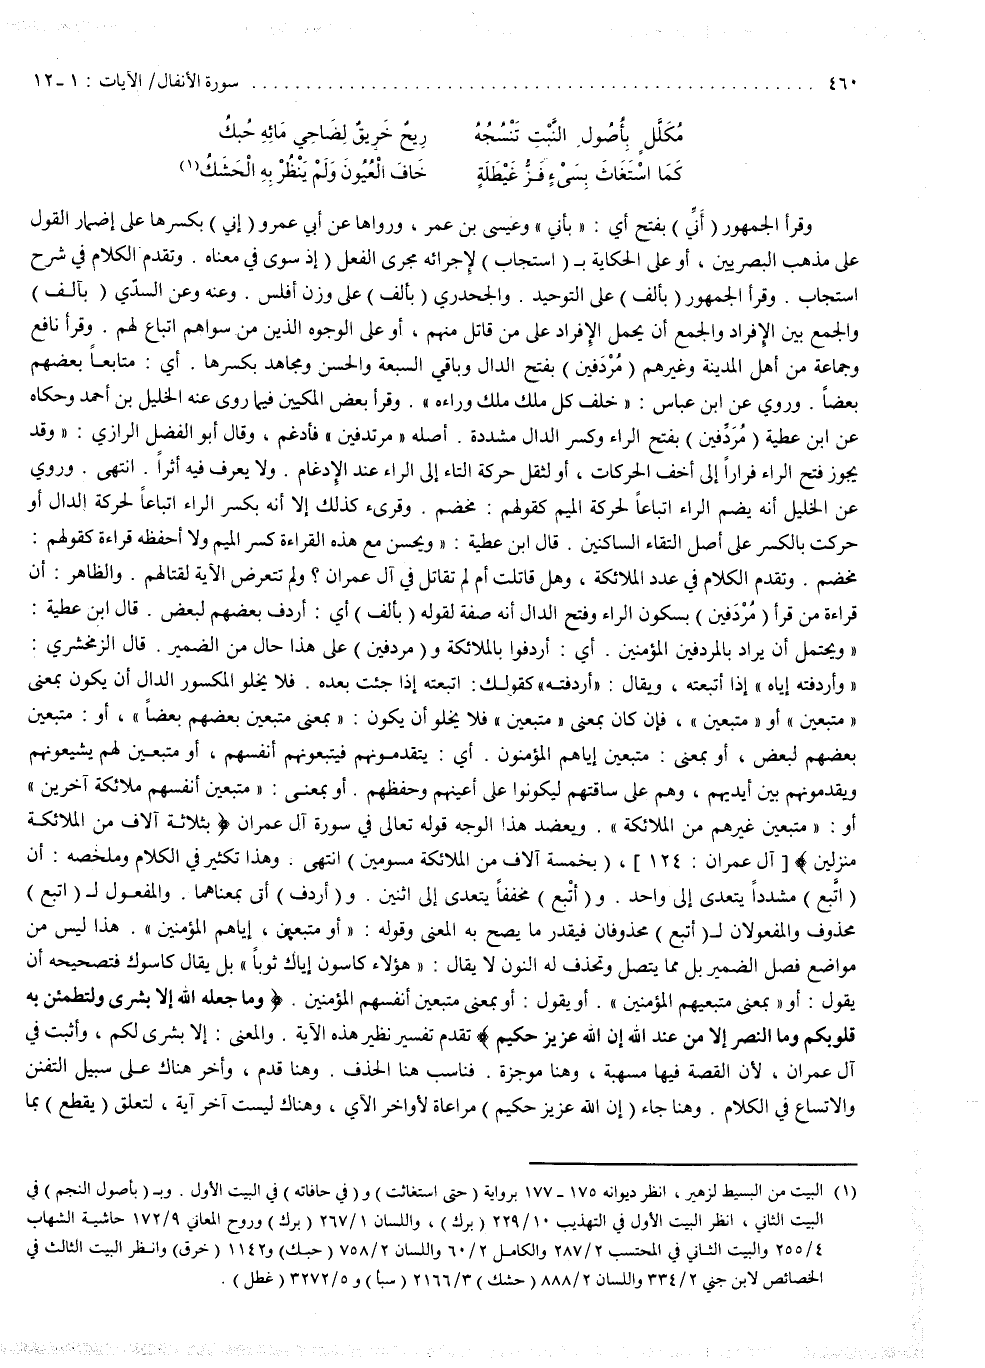 ٤٦٠ ............................................................ سورة الأنفال/ الآيات : ١ ـ ١٢
مُكَلَّلٍ بِأُصُولِ النَّبْتِ تَنْسُجُهُ رِيحٌ خَرِيقٌ لِضَاحِي مَائِهِ حُبكُ
كَمَا اسْتَغَاثَ بِسَىْءٍ فَزُّ غَيْطَلَةٍ خَافَ الْعُيُونَ وَلَمْ يَنْظُرْ بِهِ الْحَشَكُ(١)
وقرأ الجمهور ( أَنِّي ) بفتح أي : « بأني » وعيسى بن عمر ، ورواها عن أبي عمرو ( إني ) بكسرها على إضمار القول
على مذهب البصريين ، أو على الحكاية بـ ( استجاب ) لإجرائه مجرى الفعل ( إذ سوى في معناه . وتقدم الكلام في شرح
استجاب . وقرأ الجمهور ( بألف ) على التوحيد . والجحدري ( بألف ) على وزن أفلس . وعنه وعن السدّي ( بآلـف )
والجمع بين الإفراد والجمع أن يحمل الإفراد على من قاتل منهم ، أو على الوجوه الذين من سواهم اتباع لهم . وقرأ نافع
وجماعة من أهل المدينة وغيرهم ( مُرْدَفين ) بفتح الدال وباقي السبعة والحسن ومجاهد بكسرها . أي : متابعـاً بعضهم
بعضاً . وروي عن ابن عباس : « خلف كل ملك ملك وراءه » . وقرأ بعض المكيين فيما روى عنه الخليل بن أحمد وحكاه
عن ابن عطية ( مُرَدِّفين ) بفتح الراء وكسر الدال مشددة . أصله « مرتدفين » فأدغم ، وقال أبو الفضل الرازي : « وقد
يجوز فتح الراء فراراً إلى أخف الحركات ، أو لثقل حركة التاء إلى الراء عند الإدغام . ولا يعرف فيه أثراً . انتهى . وروي
عن الخليل أنه يضم الراء اتباعاً لحركة الميم كقولهم : مخضم . وقرىء كذلك إلا أنه بكسر الراء اتباعاً لحركة الدال أو
حركت بالكسر على أصل التقاء الساكنين . قال ابن عطية : « ويحسن مع هذه القراءة كسر الميم ولا أحفظه قراءة كقولهم :
مخضم . وتقدم الكلام في عدد الملائكة ، وهل قاتلت أم لم تقاتل في آل عمران ؟ ولم تتعرض الآية لقتالهم . والظاهر : أن
قراءة من قرأ ( مُرْدَفين ) بسكون الراء وفتح الدال أنه صفة لقوله ( بألف ) أي : أردف بعضهم لبعض . قال ابن عطية :
« ويحتمل أن يراد بالمردفين المؤمنين . أي : أردفوا بالملائكة و ( مردفين ) على هذا حال من الضمير . قال الزمخشري :
« وأردفته إياه » إذا أتبعته ، ويقال : «أردفتـه» كقولـك : اتبعته إذا جئت بعده . فلا يخلو المكسور الدال أن يكون بمعنى
« متبعين » أو « متبعين » ، فإن كان بمعنى « متبعين » فلا يخلو أن يكون : « بمعنى متبعين بعضهم بعضاً » ، أو : متبعين
بعضهم لبعض ، أو بمعنى : متبعين إياهم المؤمنون . أي : يتقدمـونهم فيتبعونهم أنفسهم ، أو متبعـين لهم يشيعونهم
ويقدمونهم بين أيديهم ، وهم على ساقتهم ليكونوا على أعينهم وحفظهم . أو بمعنـى : « متبعين أنفسهم ملائكة آخرين »
أو : « متبعين غيرهم من الملائكة » . ويعضد هذا الوجه قوله تعالى في سورة آل عمران ﴿ بثلاثـة آلاف من الملائكـة
منزلين ﴾ [ آل عمران : ١٢٤ ] ، ( بخمسة آلاف من الملائكة مسومين ) انتهى . وهذا تكثير في الكلام وملخصه : أن
( اتَّبع ) مشدداً يتعدى إلى واحد . و ( أتْبع ) مخففاً يتعدى إلى اثنين . و ( أردف ) أتى بمعناهما . والمفعول لـ ( اتبع )
محذوف والمفعولان لـ( أتبع ) محذوفان فيقدر ما يصح به المعنى وقوله : « أو متبعين ، إياهم المؤمنين » . هذا ليس من
مواضع فصل الضمير بل مما يتصل وتحذف له النون لا يقال : « هؤلاء كاسون إياك ثوباً » بل يقال كاسوك فتصحيحه أن
يقول : أو « بمعنى متبعيهم المؤمنين » . أو يقول : أو بمعنى متبعين أنفسهم المؤمنين . ﴿ وما جعله الله إلا بشرى ولتطمئن به
قلوبكم وما النصر إلا من عند الله إن الله عزيز حكيم ﴾ تقدم تفسير نظير هذه الآية . والمعنى : إلا بشرى لكم ، وأثبت في
آل عمران ، لأن القصة فيها مسهبة ، وهنا موجزة . فناسب هنا الحذف . وهنا قدم ، وأخر هناك علـى سبيل التفنن
والاتساع في الكلام . وهنا جاء ( إن الله عزيز حكيم ) مراعاة لأواخر الآي ، وهناك ليست آخر آية ، لتعلق ( يقطع ) بما
(١) البيت من البسيط لزهير ، انظر ديوانه ١٧٥ ـ ١٧٧ برواية ( حتى استغاثت ) و ( في حافاته ) في البيت الأول . وبـ ( بأصول النجم ) في
البيت الثاني ، انظر البيت الأول في التهذيب ٢٢٩/١٠ ( برك ) ، واللسان ٢٦٧/١ ( برك ) وروح المعاني ١٧٢/٩ حاشيـة الشهاب
٢٥٥/٤ والبيت الثـاني في المحتسب ٢٨٧/٢ والكامل ٦٠/٢ واللسان ٧٥٨/٢ ( حبـك ) و١١٤٢ ( خرق) وانـظر البيت الثالث في
الخصائص لابن جني ٣٣٤/٢ واللسان ٨٨٨/٢ ( حشك ) ٢١٦٦/٣ ( سيأ ) و ٣٢٧٢/٥ ( غطل ) .